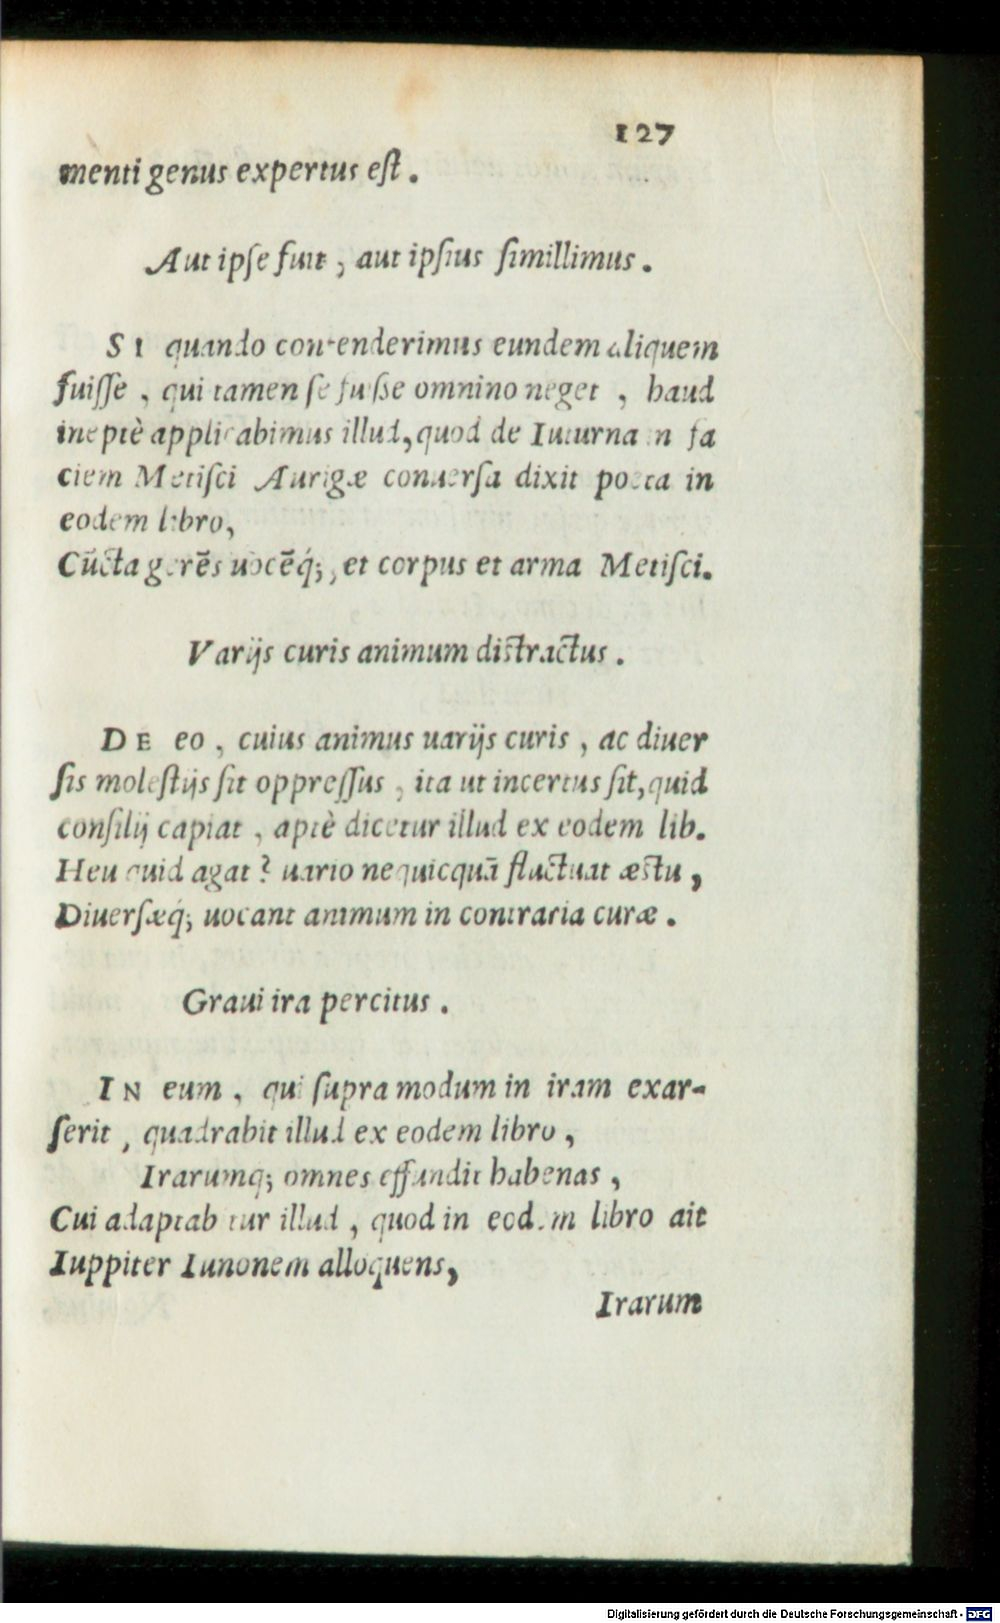 127
menti genus expertus eſt.
Aut ipſe fuit, aut ipſius ſimillimus.
SI quando contenderimus eundem aliquem
fuiſſe, qui tamen ſe fuiße omnino neget, haud
ineptè applicabimus illud, quod de Iuturna in fa
ciem Metiſci Aurigæ conuerſa dixit poeta in
eodem libro,
Cūcta gerēs uocēq́;, et corpus et arma Metiſci.
Varijs curis animum diſtractus.
DE eo, cuius animus uarijs curis, ac diuer
ſis moleſtijs ſit oppreſſus, ita ut incertus ſit, quid
conſilij capiat, aptè dicetur illud ex eodem lib.
Heu quid agat? uario nequicquā fluctuat æſtu,
Diuerſæq́; uocant animum in contraria curæ.
Graui ira percitus.
IN eum, qui ſupra modum in iram exar-
ſerit, quadrabit illud ex eodem libro,
Irarumq; omnes effundit habenas,
Cui adaptabitur illud, quod in eodem libro ait
Iuppiter Iunonem alloquens,
Irarum
Digitalisierung gefördert durch die Deutsche Forschungsgemeinschaft - DFG